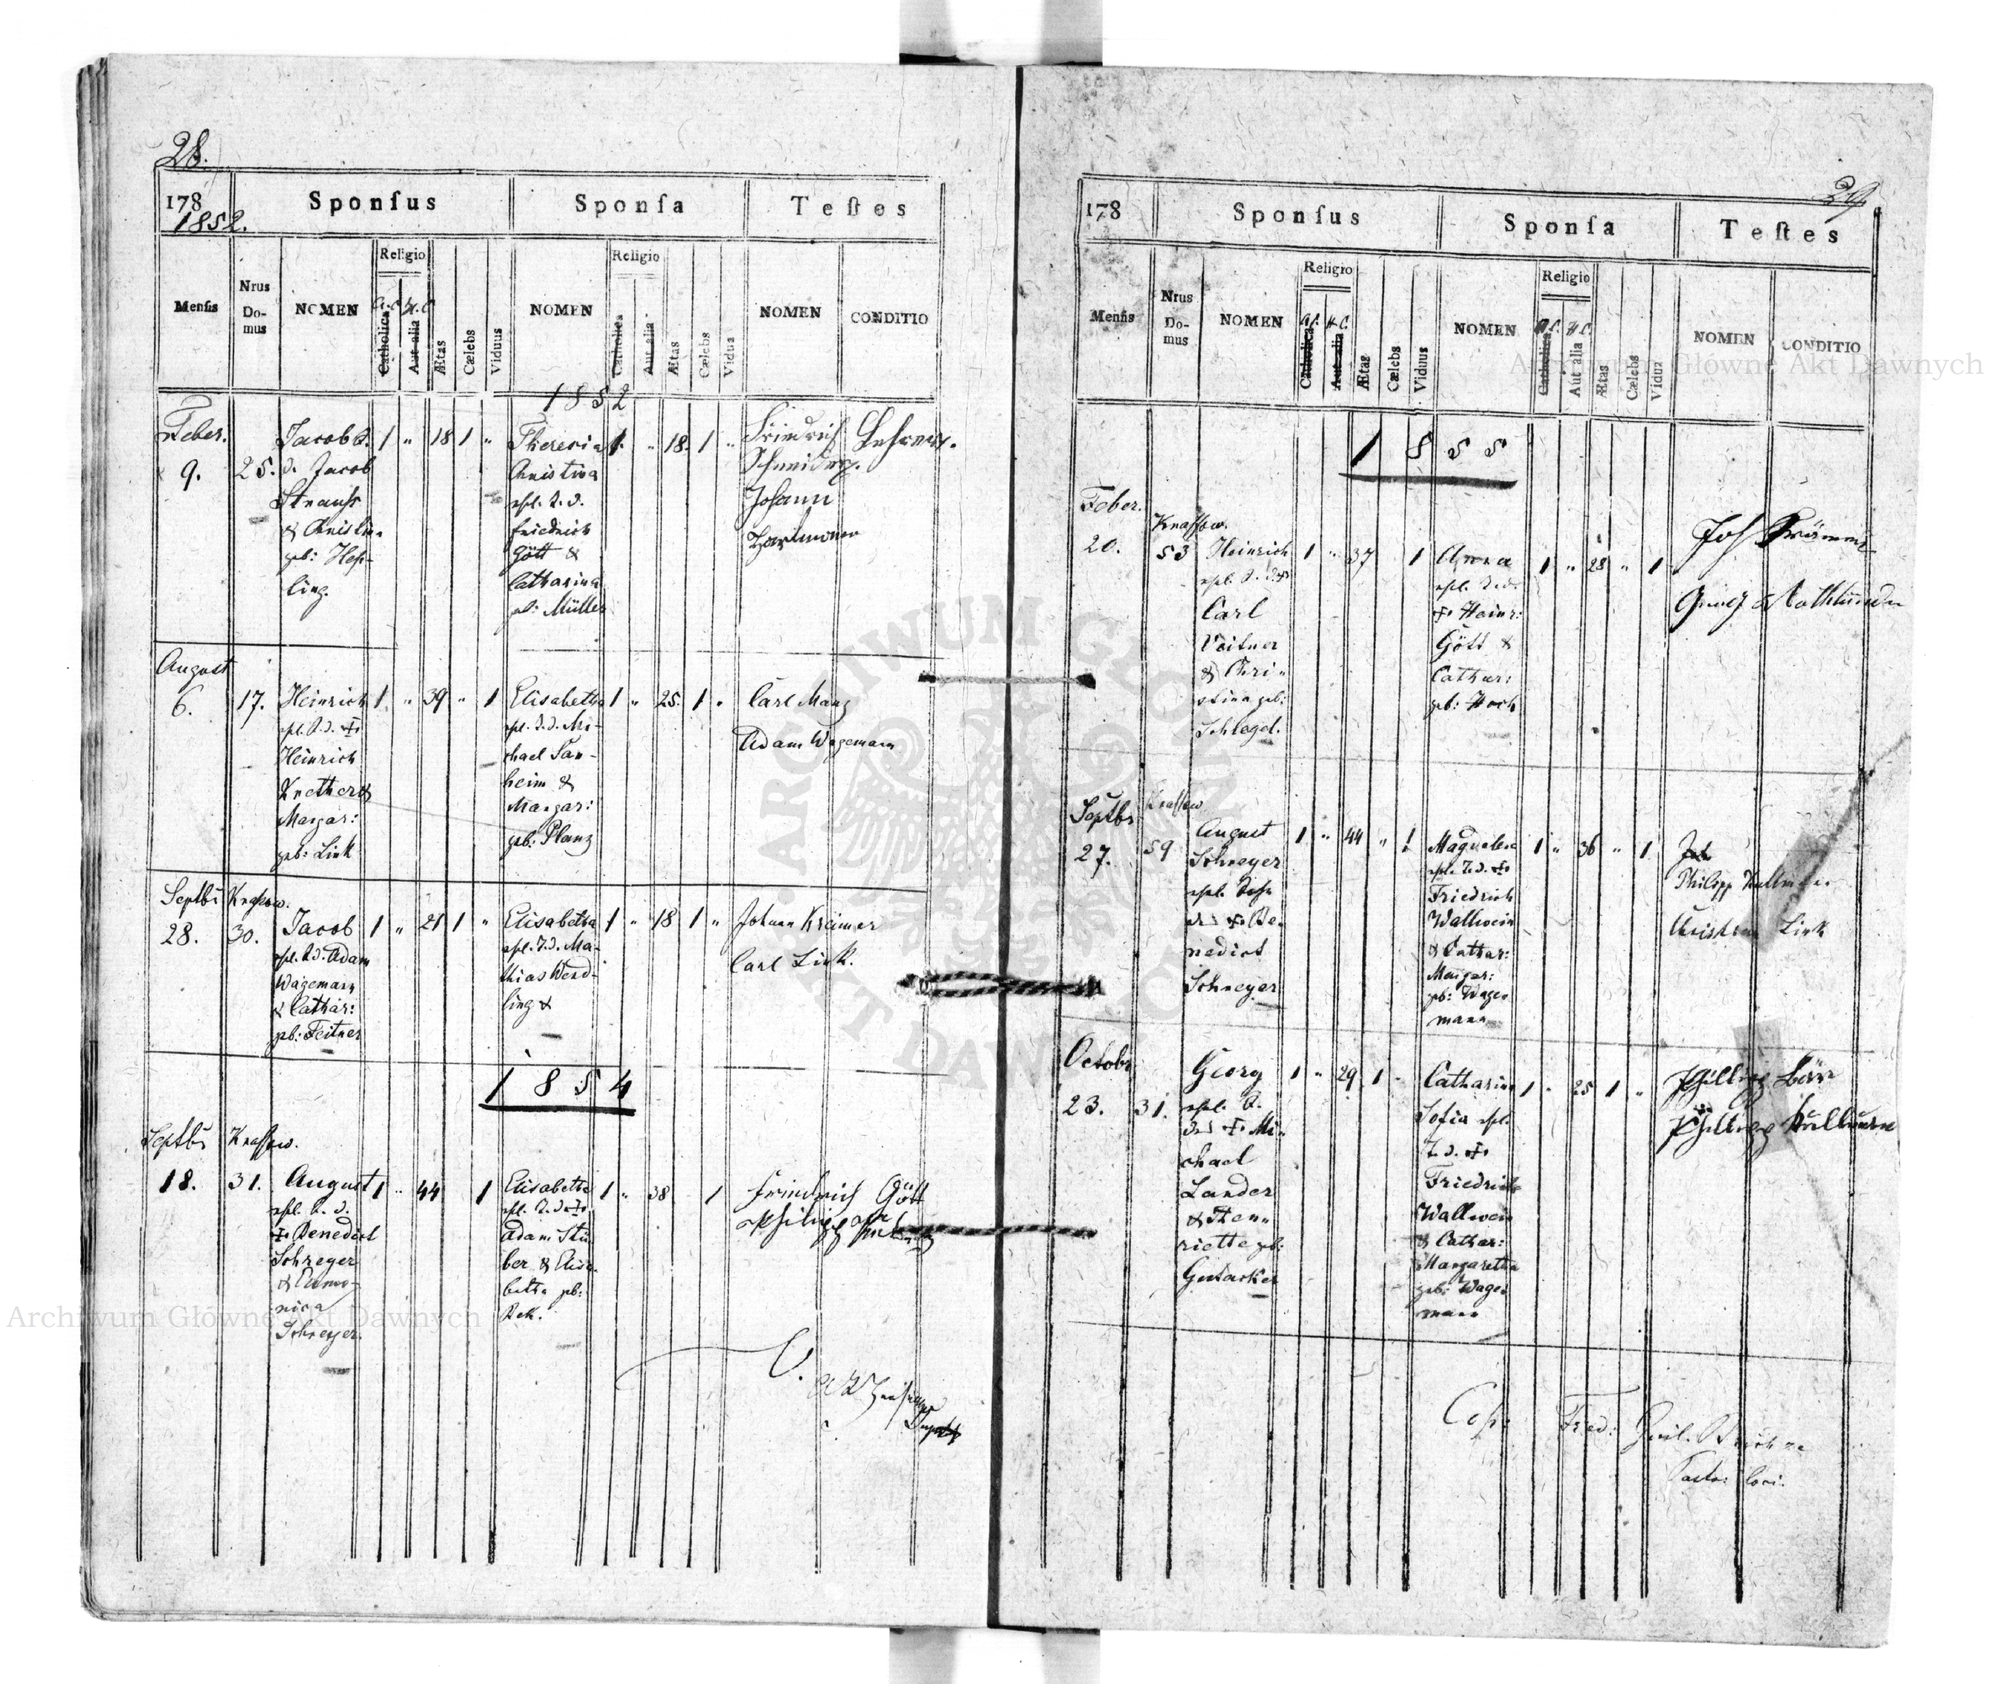 28.
178
1852.
Sponſus
Sponſa
Teſtes
Menſis
Nrus
Do-
mus
NOMEN
Religio
A.C.
H.C
Catholica
Aut alia
Ætas
Cælebs
Viduus
NOMEN
Religio
Catholica
Aut alia
Ætas
Cælebs
Vidua
NOMEN
CONDITIO
1852
Feber.
9.
25.
Jacob S.
d. Jacob
Strauss
& Christin.
geb: Hess-
ling.
1 " 18 1 "
Theresia
Christina
ehl. T. d.
Friedrich
Gött &
Catharina
geb: Müller
1. " 18. 1 "
Friedrich
Schneider.
Johann
Hartmann
Lehrer.
August
6.
17.
Heinrich
ehl. S. d. +
Heinrich
Knether &
Margar:
geb: Link
1 " 39 " 1
Elisabetha
ehl. T. d. Mi-
chael Tan-
heim &
Margar:
geb: Planz
1 " 25. 1 "
Carl Manz
Adam Wagemann
Septbr
28.
Krassow.
30.
Jacob
ehl. S. d. Adam
Wagemann
& Cathar:
geb: Feitner
1 " 21 1 "
Elisabetha
ehl. T. d. Ma-
thias Wend-
ling &
1 " 18 1 "
Johann Kreimer
Carl Link.
1854
Septbr
18.
Krassow.
31.
August
ehl. S. d.
+ Benedict
Schreyer
&
nica
Schreyer.
1 " 44 1
Elisabetha
ehl. T. d. +
Adam Stü-
ber & Elisa-
betha geb:
Rek.
1 " 38 1
Friedrich Gött
29
178
Sponſus
Sponſa
Teſtes
Menſis
Nrus
Do-
mus
NOMEN
Religio
A.C.
H.C.
Catholica
Aut alia
Ætas
Cælebs
Viduus
NOMEN
Religio
A.C.
H.C.
Catholica
Aut alia
Ætas
Cælebs
Vidua
NOMEN
CONDITIO
1855
Feber.
20.
Krassow.
53
Heinrich
ehl. S. des
Carl
Voitner
& Chri-
stina geb:
Schlegel.
1 " 37 1
Anna
ehl. T. d.
+ Heinr:
Gött &
Cathar:
geb: Hoch
1 " 28 " 1
Septbr
27.
Krassow
59
August
Schreyer
ehl. Sohn
des + Be-
nedict
Schreyer
1 " 44 " 1
Magdalena
ehl. T. d. +
Friedrich
Wallwein
& Cathar:
Margar:
geb: Wage-
mann
1 " 36 " 1
Philipp
Christian Link
Octobr
23.
31.
Georg
ehl. S.
des + Mi-
chael
Lander
& Hen-
riette geb:
Gutacker
1 " 29 1 "
Catharina
Sofia ehl.
T. d. +
Friedrich
Wallwein
& Cathar:
Margaretha
geb: Wage-
mann
1 " 25 1 "
Fried:
Pastor loci.
ARCHIWUM GŁÓWNE AKT DAWNYCH
Archiwum Główne Akt Dawnych
Archiwum Główne Akt Dawnych